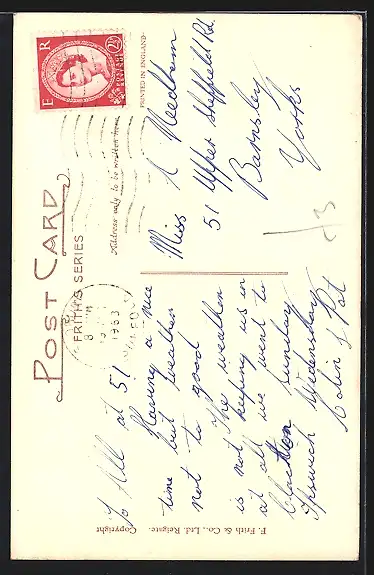 POST CARD
FRITHS SERIES
Address only to be written here
PRINTED IN ENGLAND
E R
2½D
POSTAGE
REVENUE
1953
To All at 51
Having a nice
time but weather
not to good
The weather
is not keeping us in
at all we went to
Clacton Sunday
Ipswich Wednesday
Colin & Pat
Miss A Needham
51 Upper Sheffield Rd.
Barnsley
Yorks
F. Frith & Co., Ltd. Reigate. Copyright